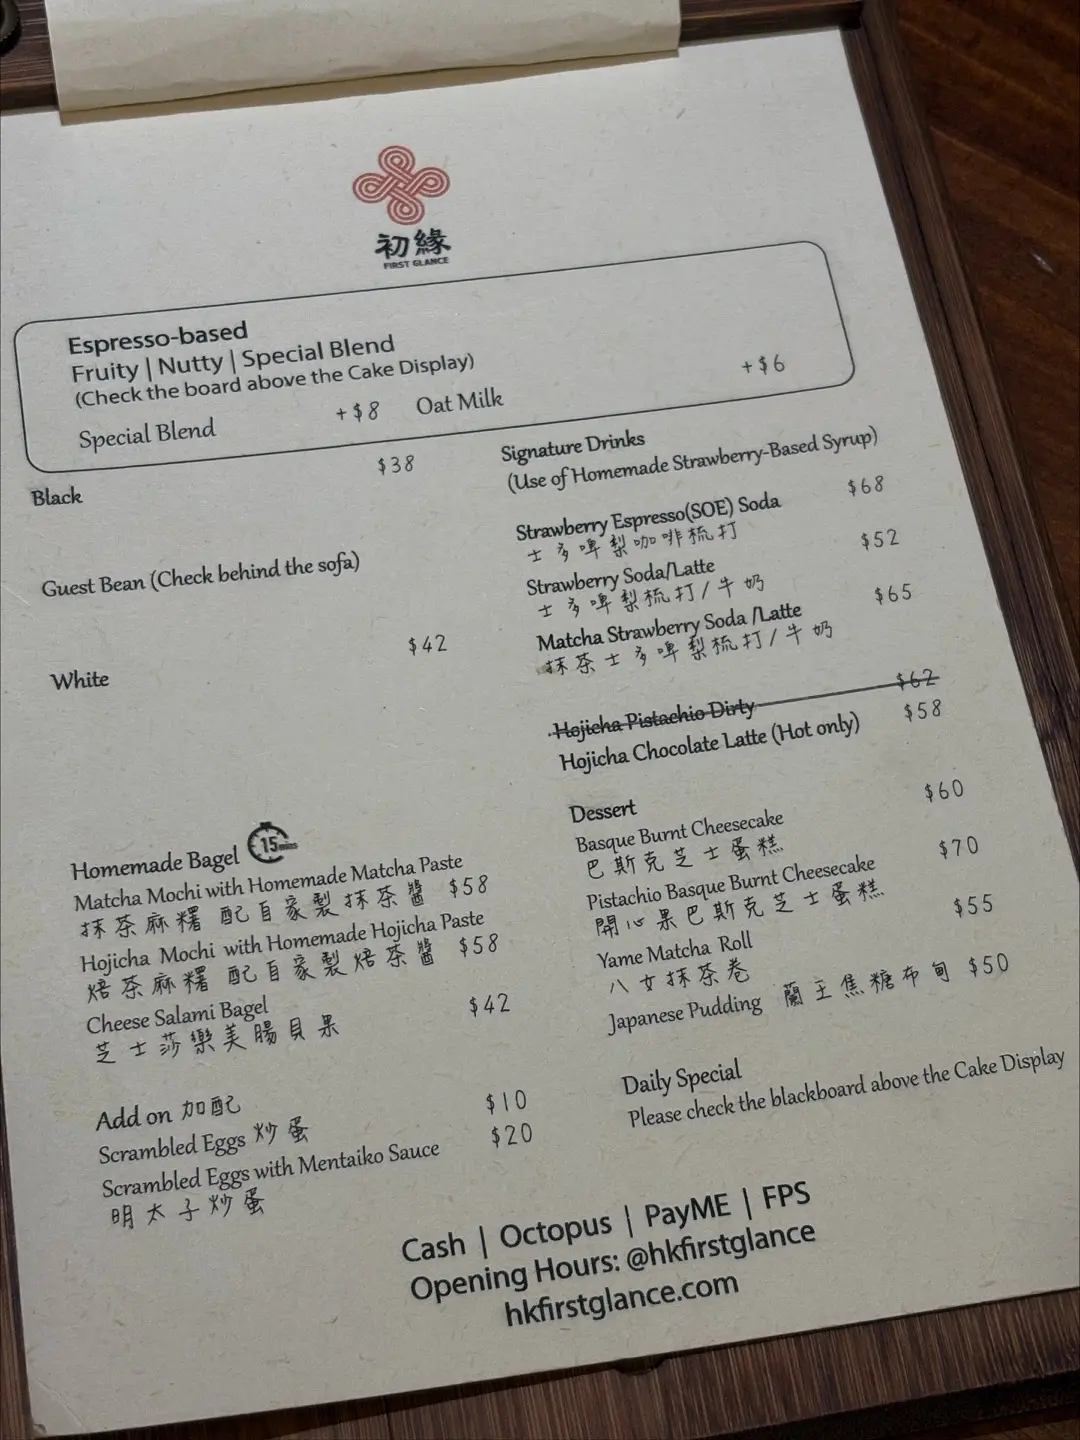 初緣
FIRST GLANCE
Espresso-based
Fruity | Nutty | Special Blend
(Check the board above the Cake Display)
Special Blend +$8 Oat Milk +$6
Black $38
Guest Bean (Check behind the sofa)
White $42
Homemade Bagel 15 mins
Matcha Mochi with Homemade Matcha Paste
抹茶麻糬 配自家製抹茶醬 $58
Hojicha Mochi with Homemade Hojicha Paste
焙茶麻糬 配自家製焙茶醬 $58
Cheese Salami Bagel $42
芝士莎樂美腸貝果
Add on 加配
Scrambled Eggs 炒蛋 $10
Scrambled Eggs with Mentaiko Sauce $20
明太子炒蛋
Signature Drinks
(Use of Homemade Strawberry-Based Syrup)
Strawberry Espresso(SOE) Soda $68
士多啤梨咖啡梳打
Strawberry Soda/Latte $52
士多啤梨梳打/牛奶
Matcha Strawberry Soda /Latte $65
抹茶士多啤梨梳打/牛奶
Hojicha Pistachio Dirty $62
Hojicha Chocolate Latte (Hot only) $58
Dessert
Basque Burnt Cheesecake $60
巴斯克芝士蛋糕
Pistachio Basque Burnt Cheesecake $70
開心果巴斯克芝士蛋糕
Yame Matcha Roll $55
八女抹茶卷
Japanese Pudding 蘭王焦糖布甸 $50
Daily Special
Please check the blackboard above the Cake Display
Cash | Octopus | PayME | FPS
Opening Hours: @hkfirstglance
hkfirstglance.com